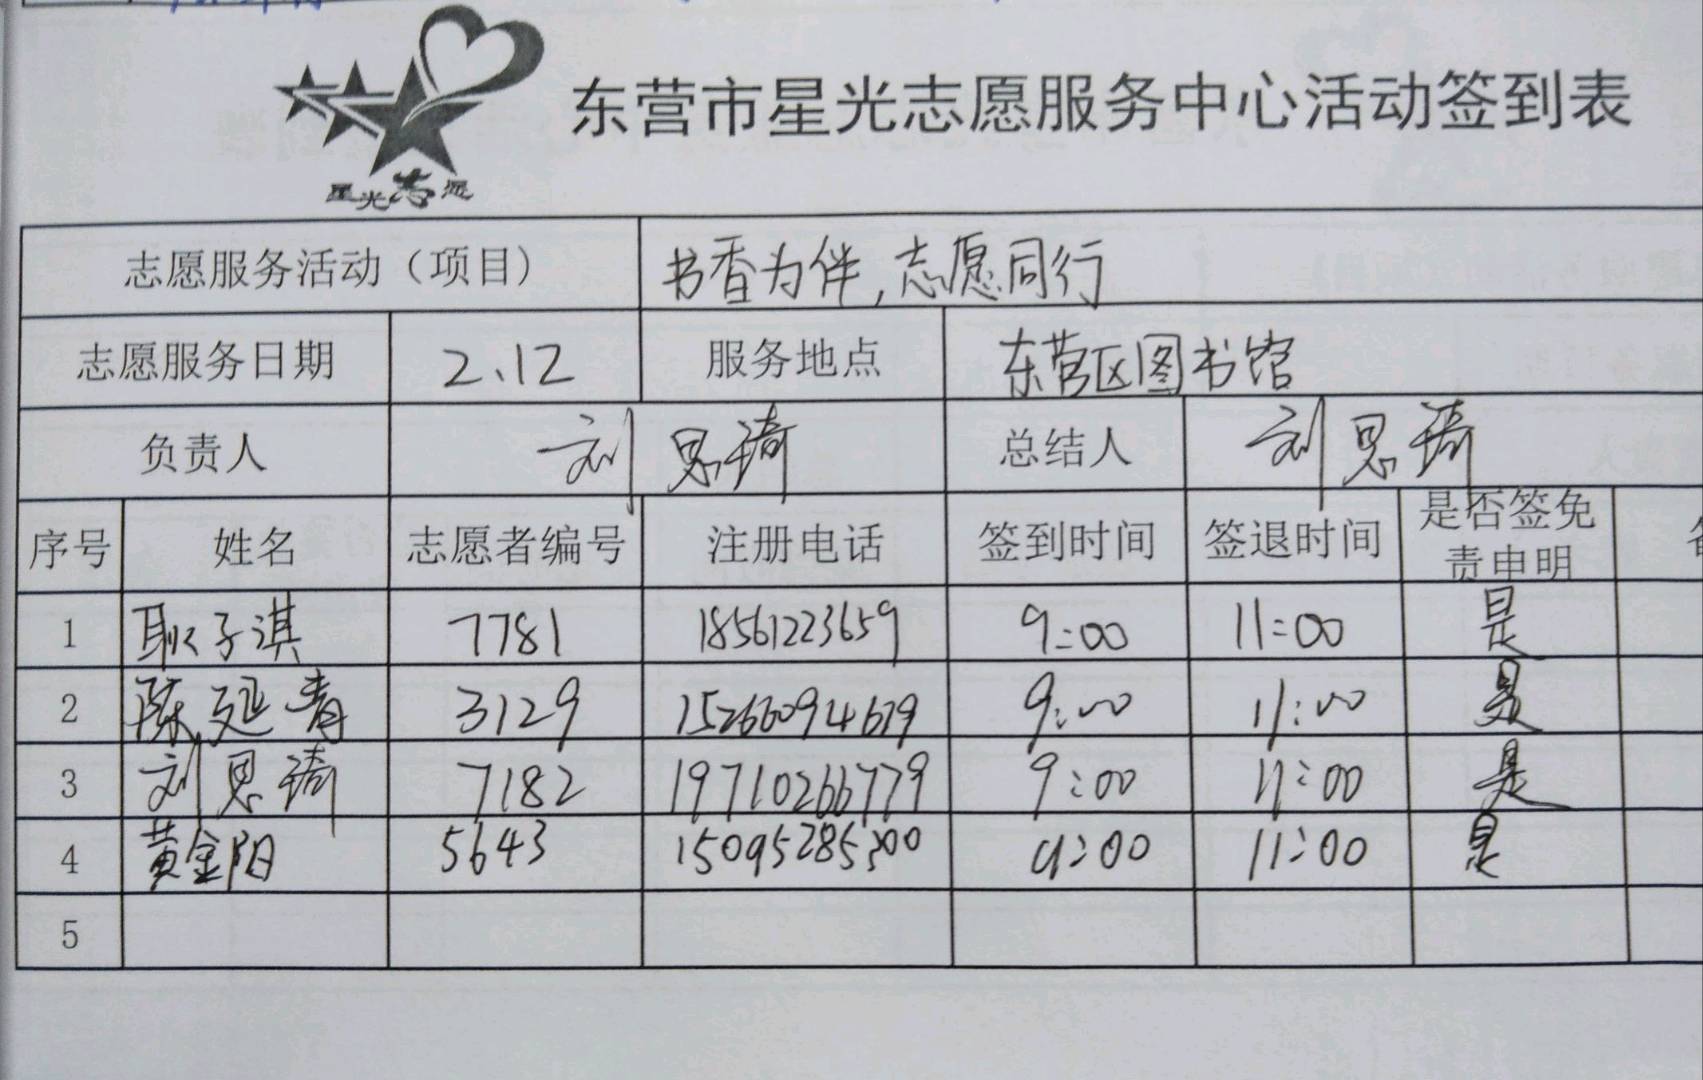 东营市星光志愿服务中心活动签到表
星光志愿
志愿服务活动（项目） 书香为伴,志愿同行
志愿服务日期 2、12 服务地点 东营区图书馆
负责人 刘思琦 总结人 刘思琦
序号 姓名 志愿者编号 注册电话 签到时间 签退时间 是否签免
责申明
1 耿子淇 7781 18561223659 9:00 11:00 是
2 陈延青 3129 15266094679 9:00 11:00 是
3 刘思琦 7182 19710266779 9:00 11:00 是
4 黄金阳 5643 15095285300 9:00 11:00 是
5